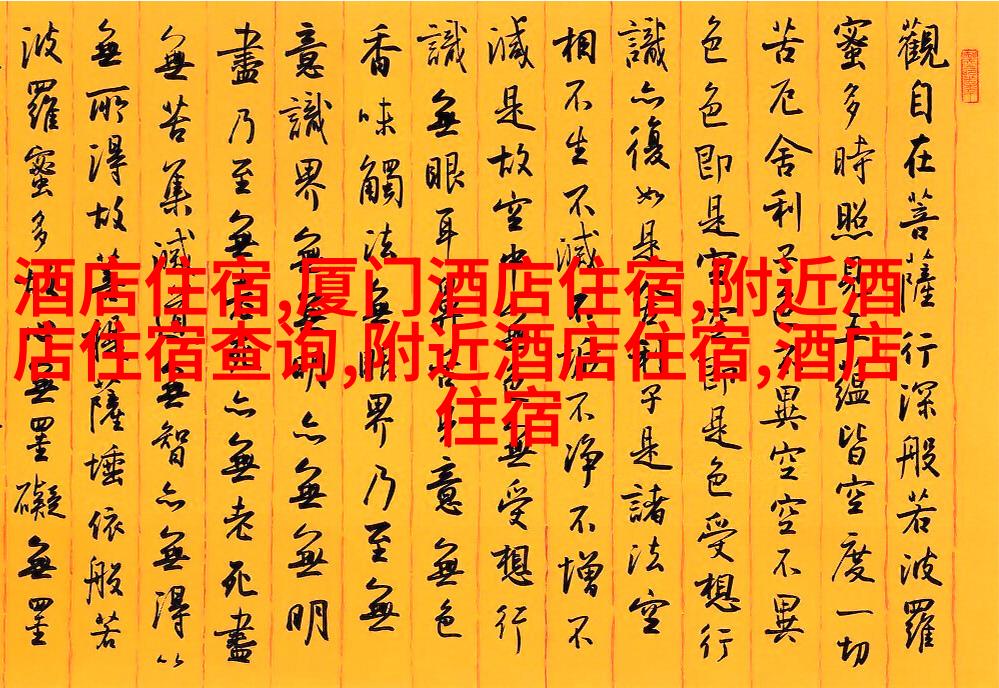 觀自在菩薩行深般若波羅
蜜多時照見五蘊皆空度一切
苦厄舍利子色不異空空不異
色色即是空空即是色受想行
識亦復如是舍利子是諸法空
相不生不滅不垢不淨不增不
減是故空中無色無受想行
識無眼耳鼻舌身意無色
香味觸法無眼界乃至無
意識界無無明亦無無明
盡乃至無老死亦無老死盡
無苦集滅道無智亦無得以
無所得故菩提薩埵依般若
波羅蜜多故心無罣礙無罣
酒店住宿,厦门酒店住宿,附近酒
店住宿查询,附近酒店住宿,酒店
住宿